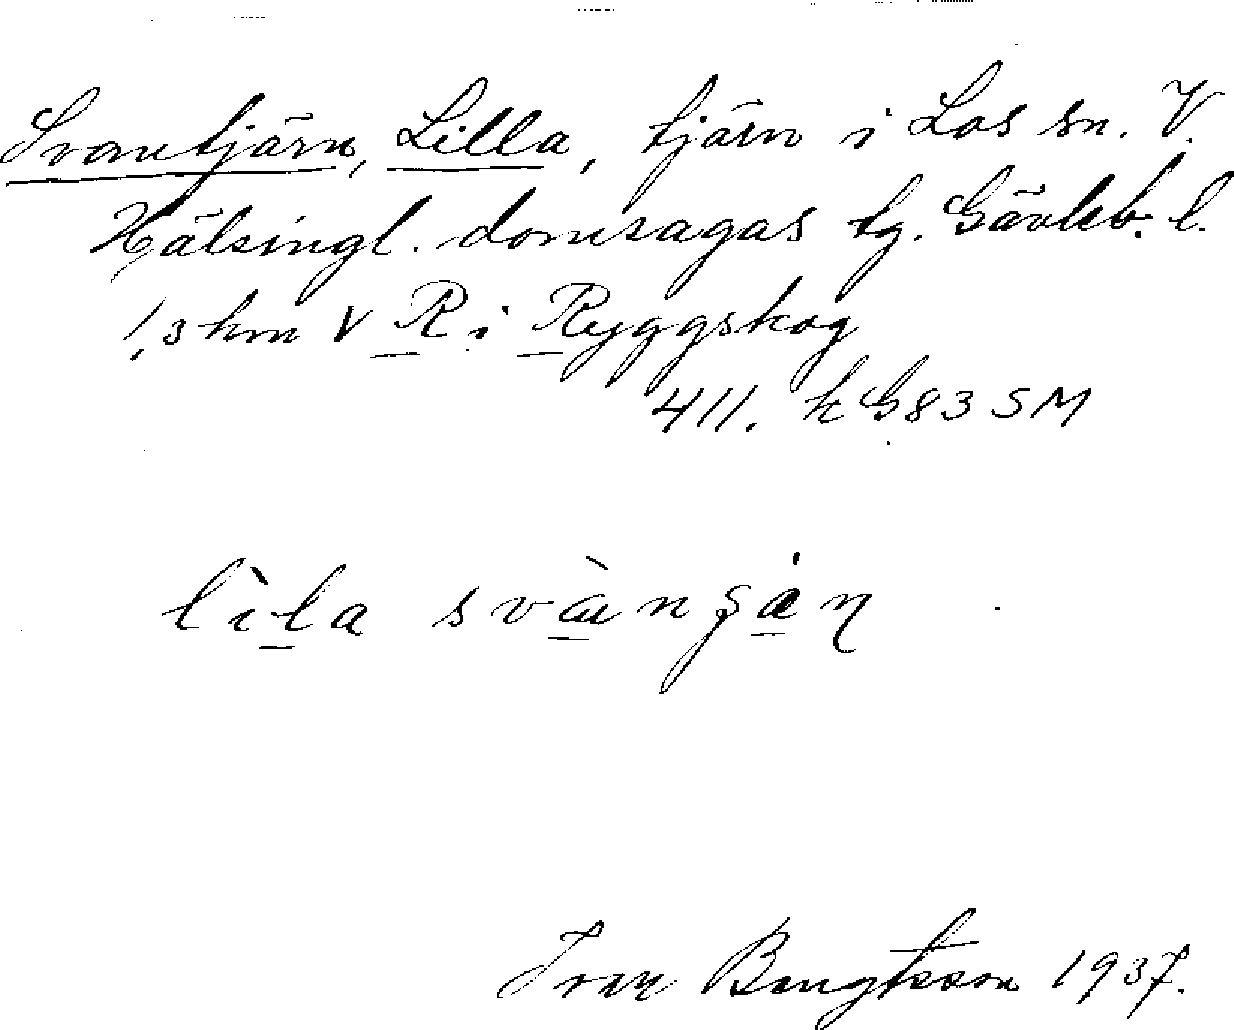 Svantjärn, Lilla, tjärn i Los sn. V.
Hälsingl. domsagas tg. Gävleb. l.
1,3 km V R i Ryggskog
411. k G83 SM
lìla svànṣän
Ivar Bengtsson 1937.